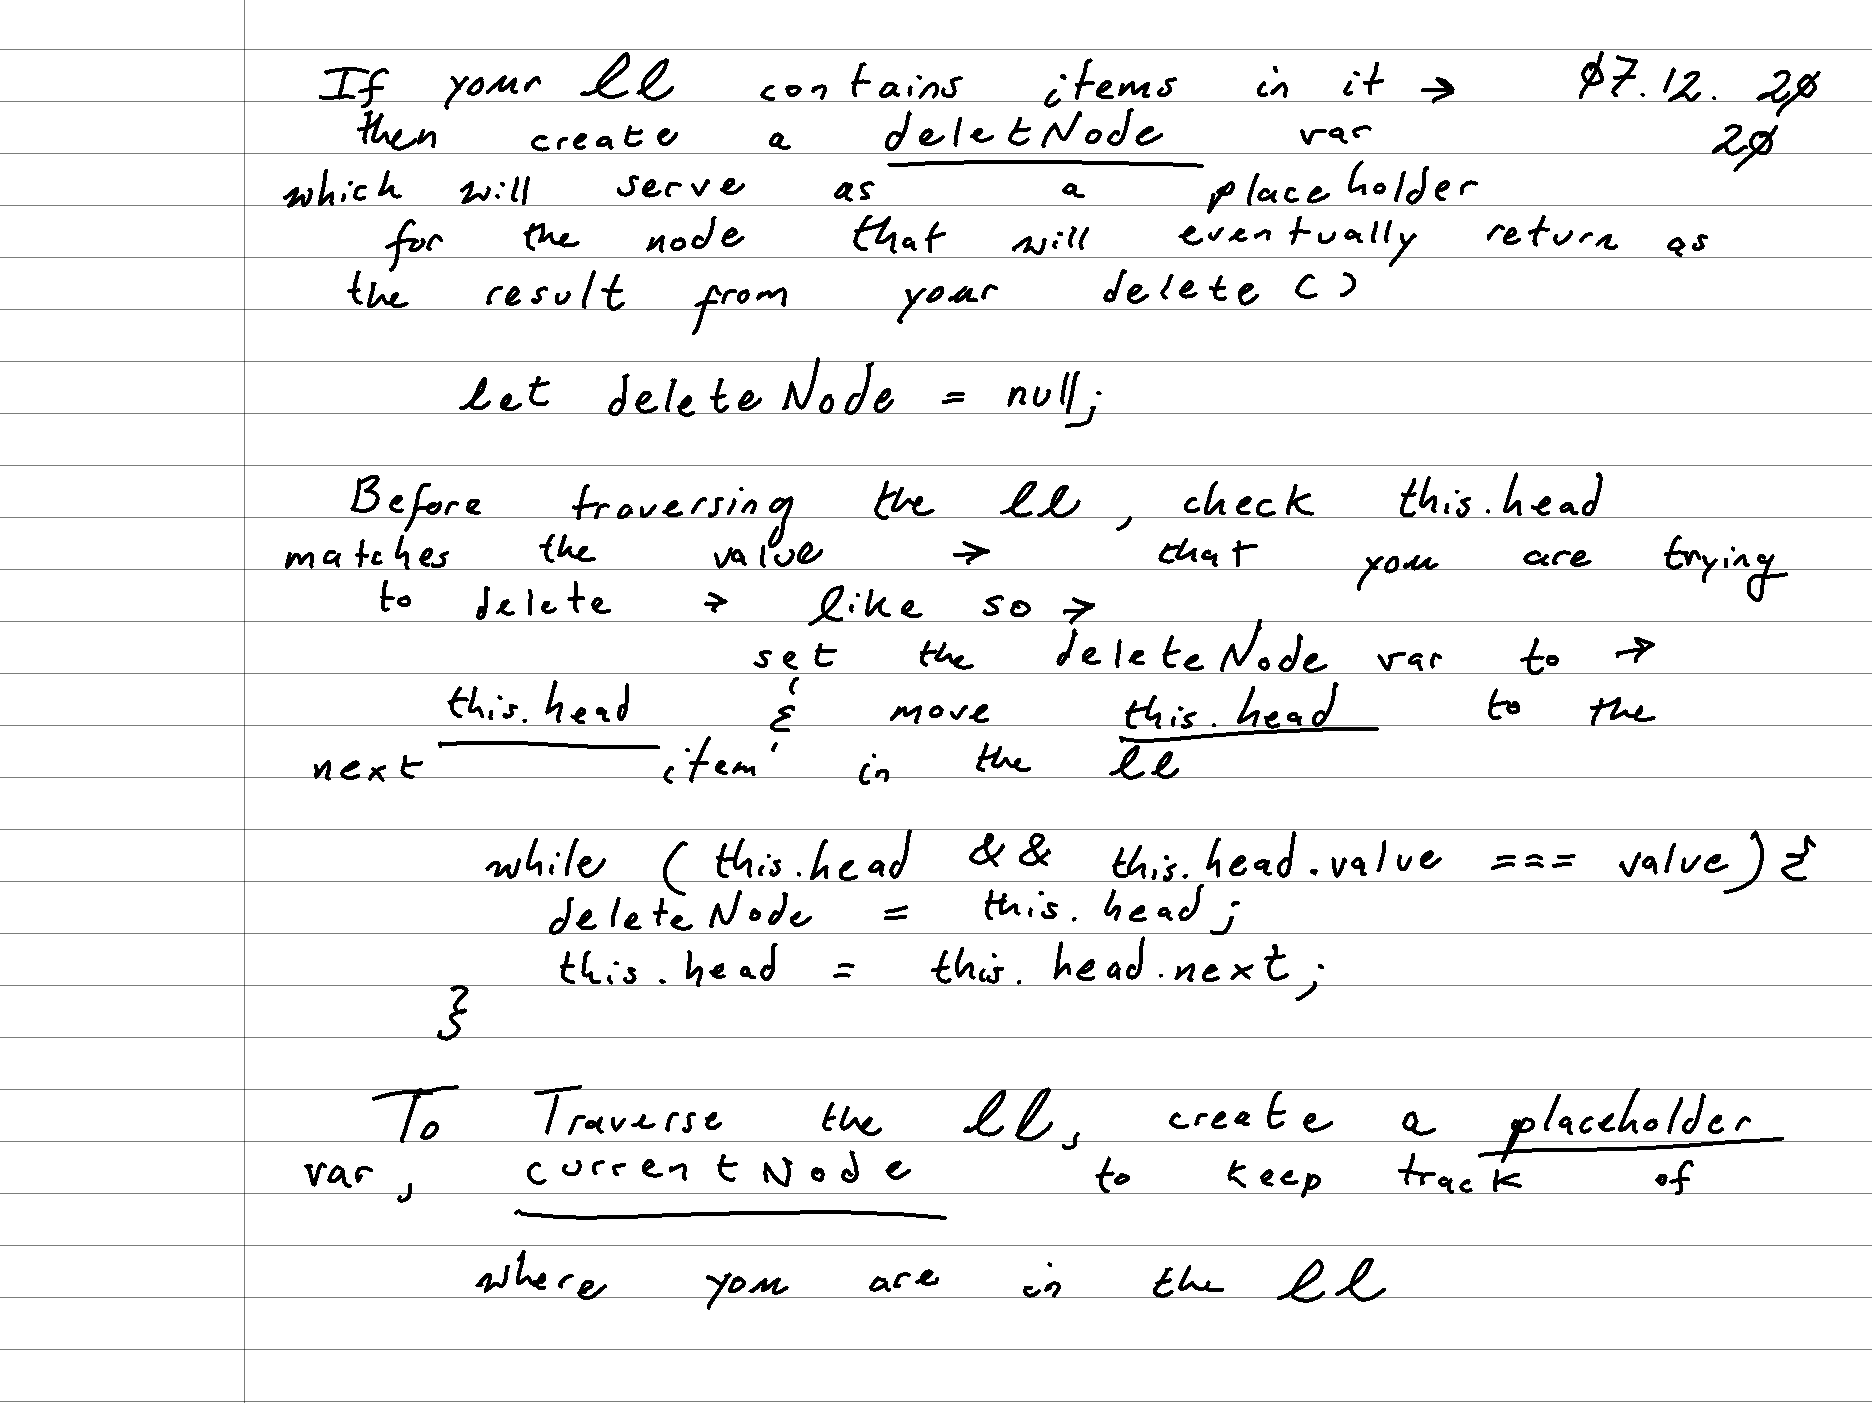 If your ll contains items in it → 07.12.20
then create a deletNode var 20
which will serve as a placeholder
for the node that will eventually return as
the result from your delete()
let deleteNode = null;
Before traversing the ll, check this.head
matches the value → that you are trying
to delete → like so →
set the deleteNode var to →
this.head & move this.head to the
next item in the ll
while (this.head && this.head.value === value) {
deleteNode = this.head;
this.head = this.head.next;
}
To Traverse the ll, create a placeholder
var, currentNode to keep track of
where you are in the ll